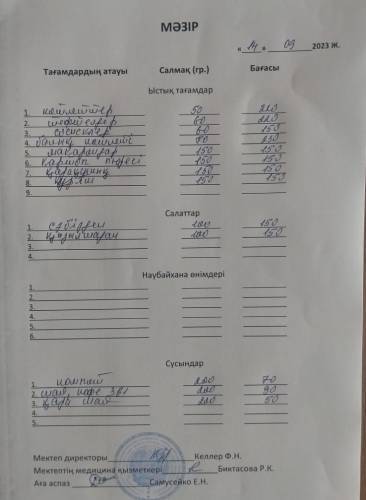 МӘЗІР
« 14 » 09 2023 ж.
Тағамдардың атауы Салмақ (гр.) Бағасы
Ыстық тағамдар
1. котлеттер 50 220
2. тефтелдер 60 220
3. сосискілер 60 150
4. балық котлеті 50 250
5. макарондар 150 150
6. картоп пюресі 150 150
7. қарақұмық 150 150
8. күріш 150 150
Салаттар
1. сәбізден 100 150
2. қызылшадан 100 150
3.
4.
Наубайхана өнімдері
1.
2.
3.
4.
5.
6.
Сусындар
1. компот 200 70
2. шай, кофе 3в1 200 90
3. қара шай 200 50
4.
5.
Мектеп директоры Келлер Ф.Н.
Мектептің медицина қызметкері Биктасова Р.К.
Аға аспаз Самусейко Е.Н.